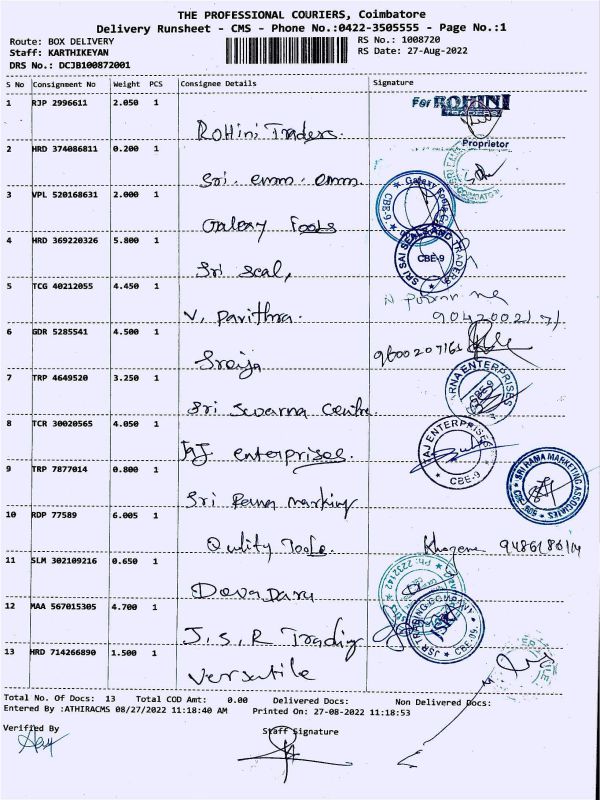 THE PROFESSIONAL COURIERS, Coimbatore
Delivery Runsheet - CMS - Phone No.:0422-3505555 - Page No.:1
Route: BOX DELIVERY
RS No.: 1008720
Staff: KARTHIKEYAN
RS Date: 27-Aug-2022
DRS No.: DCJB100872001
S No Consignment No Weight PCS Consignee Details Signature
1 RJP 2996611 2.050 1
For ROHINI
Rohini Traders.
Proprietor
2 HRD 374086811 0.200 1
Sri. emm. emm.
3 VPL 520168631 2.000 1
CBE-9.
Galaxy Tools
4 HRD 369220326 5.800 1
SRI SAI SCALE AND TRADERS
CBE-9
Sri Scal,
5 TCG 40212055 4.450 1
V. Pavithra.
6 GDR 5285541 4.500 1
Sreija
7 TRP 4649520 3.250 1
RNA ENTERPRISES
CBE-9
Sri Swarna Centre
8 TCR 30020565 4.050 1
TAJ ENTERPRISES
CBE-9
Taj enterprises.
9 TRP 7877014 0.800 1
SRI RAMA MARKETING ASSOCIATES
Sri Rama marking
10 RDP 77589 6.005 1
Qulity Tools.
11 SLM 302109216 0.650 1
Ph: 2232142
Devadaru
12 MAA 567015305 4.700 1
JSR TRADING COMPANY
JSR
CBE-05
J.S.R Trading
13 HRD 714266890 1.500 1
Versatile
Total No. Of Docs: 13 Total COD Amt: 0.00 Delivered Docs: Non Delivered Docs:
Entered By :ATHIRACMS 08/27/2022 11:18:40 AM Printed On: 27-08-2022 11:18:53
Verified By
Staff Signature